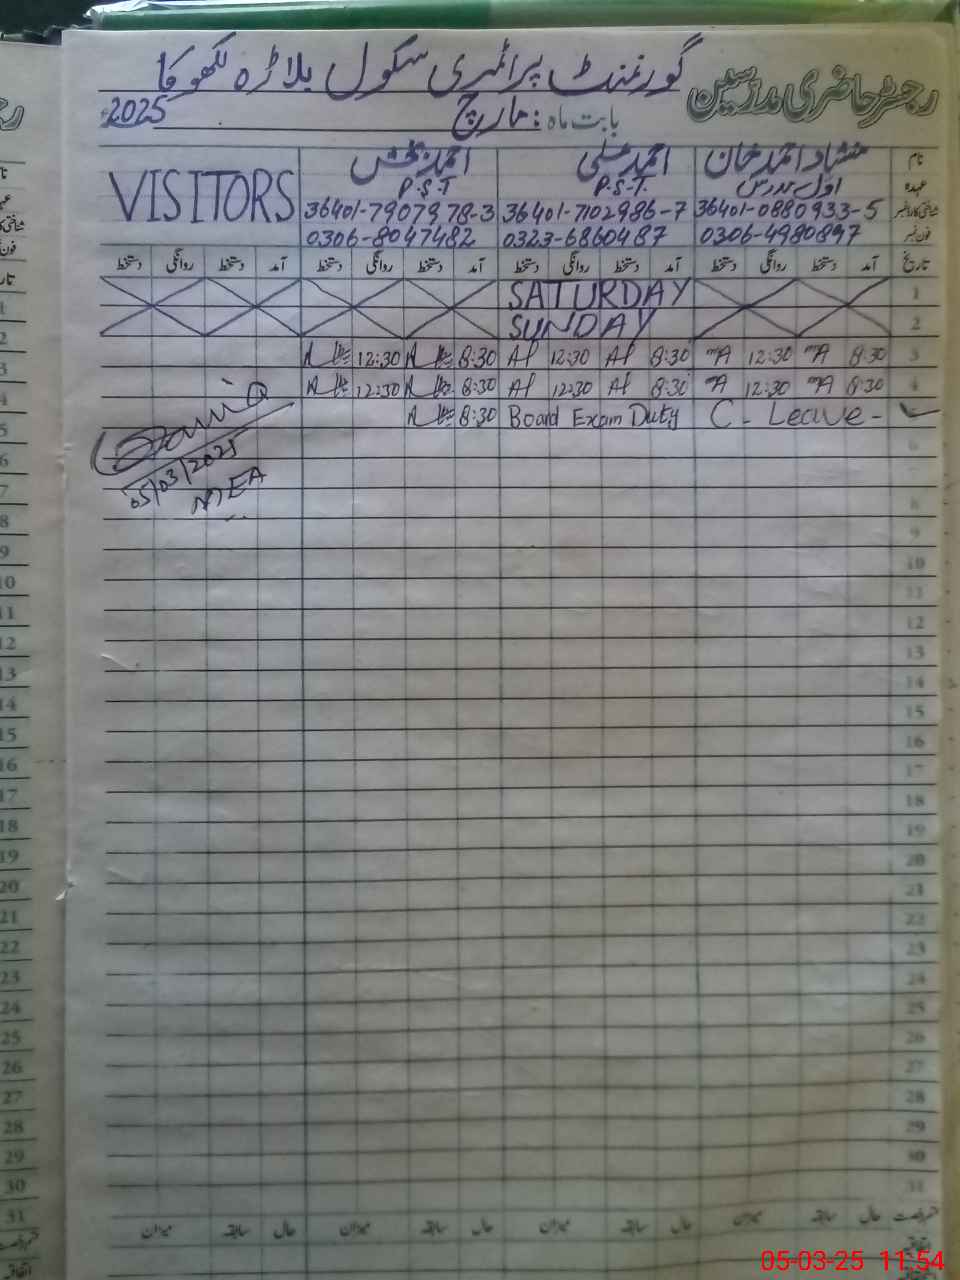 گورنمنٹ پرائمری سکول بلاڑہ لکھوکا
رجسٹر حاضری مدرسین
بابت ماہ: مارچ 2025
نام منشاد احمد خان احمد علی احمد بخش VISITORS
عہدہ اول مدرس P.S.T. P.S.T
شناختی کارڈ نمبر 36401-0880933-5 36401-7102986-7 36401-7907978-3
فون نمبر 0306-4980897 0323-6860487 0306-8047482
تاریخ آمد دستخط روانگی دستخط آمد دستخط روانگی دستخط آمد دستخط روانگی دستخط آمد دستخط روانگی دستخط
1 SATURDAY
2 SUNDAY
3 8:30 12:30 8:30 Af 12:30 Af 8:30 12:30
4 8:30 12:30 8:30 Af 12:30 Af 8:30 12:30
C - Leave - Board Exam Duty 8:30
05/03/2025
MEA
6
7
8
9
10
11
12
13
14
15
16
17
18
19
20
21
22
23
24
25
26
27
28
29
30
31
حال سابقہ میزان حال سابقہ میزان حال سابقہ میزان حال سابقہ میزان
اتفاقیہ
05-03-25 11:54